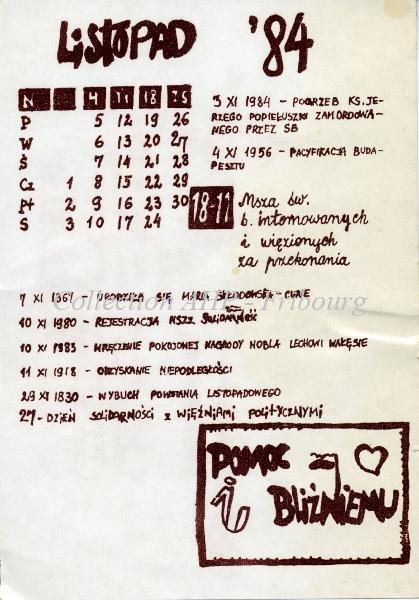 LISTOPAD '84
N 4 11 18 25
P 5 12 19 26
W 6 13 20 27
Ś 7 14 21 28
Cz 1 8 15 22 29
Pt 2 9 16 23 30
S 3 10 17 24
3 XI 1984 - POGRZEB KS. JE-
RZEGO POPIEŁUSZKI ZAMORDOWA-
NEGO PRZEZ SB
4 XI 1956 - PACYFIKACJA BUDA-
PESZTU
18-11 Msza św.
b. internowanych
i więzionych
za przekonania
7 XI 1867 - URODZIŁA SIĘ MARIA SKŁODOWSKA-CURIE
10 XI 1980 - REJESTRACJA NSZZ SOLIDARNOŚĆ
10 XI 1983 - WRĘCZENIE POKOJOWEJ NAGRODY NOBLA LECHOWI WAŁĘSIE
11 XI 1918 - ODZYSKANIE NIEPODLEGŁOŚCI
29 XI 1830 - WYBUCH POWSTANIA LISTOPADOWEGO
27 - DZIEŃ SOLIDARNOŚCI z WIĘŹNIAMI POLITYCZNYMI
POMOC
i BLIŹNIEMU
Collection AHP - Fribourg